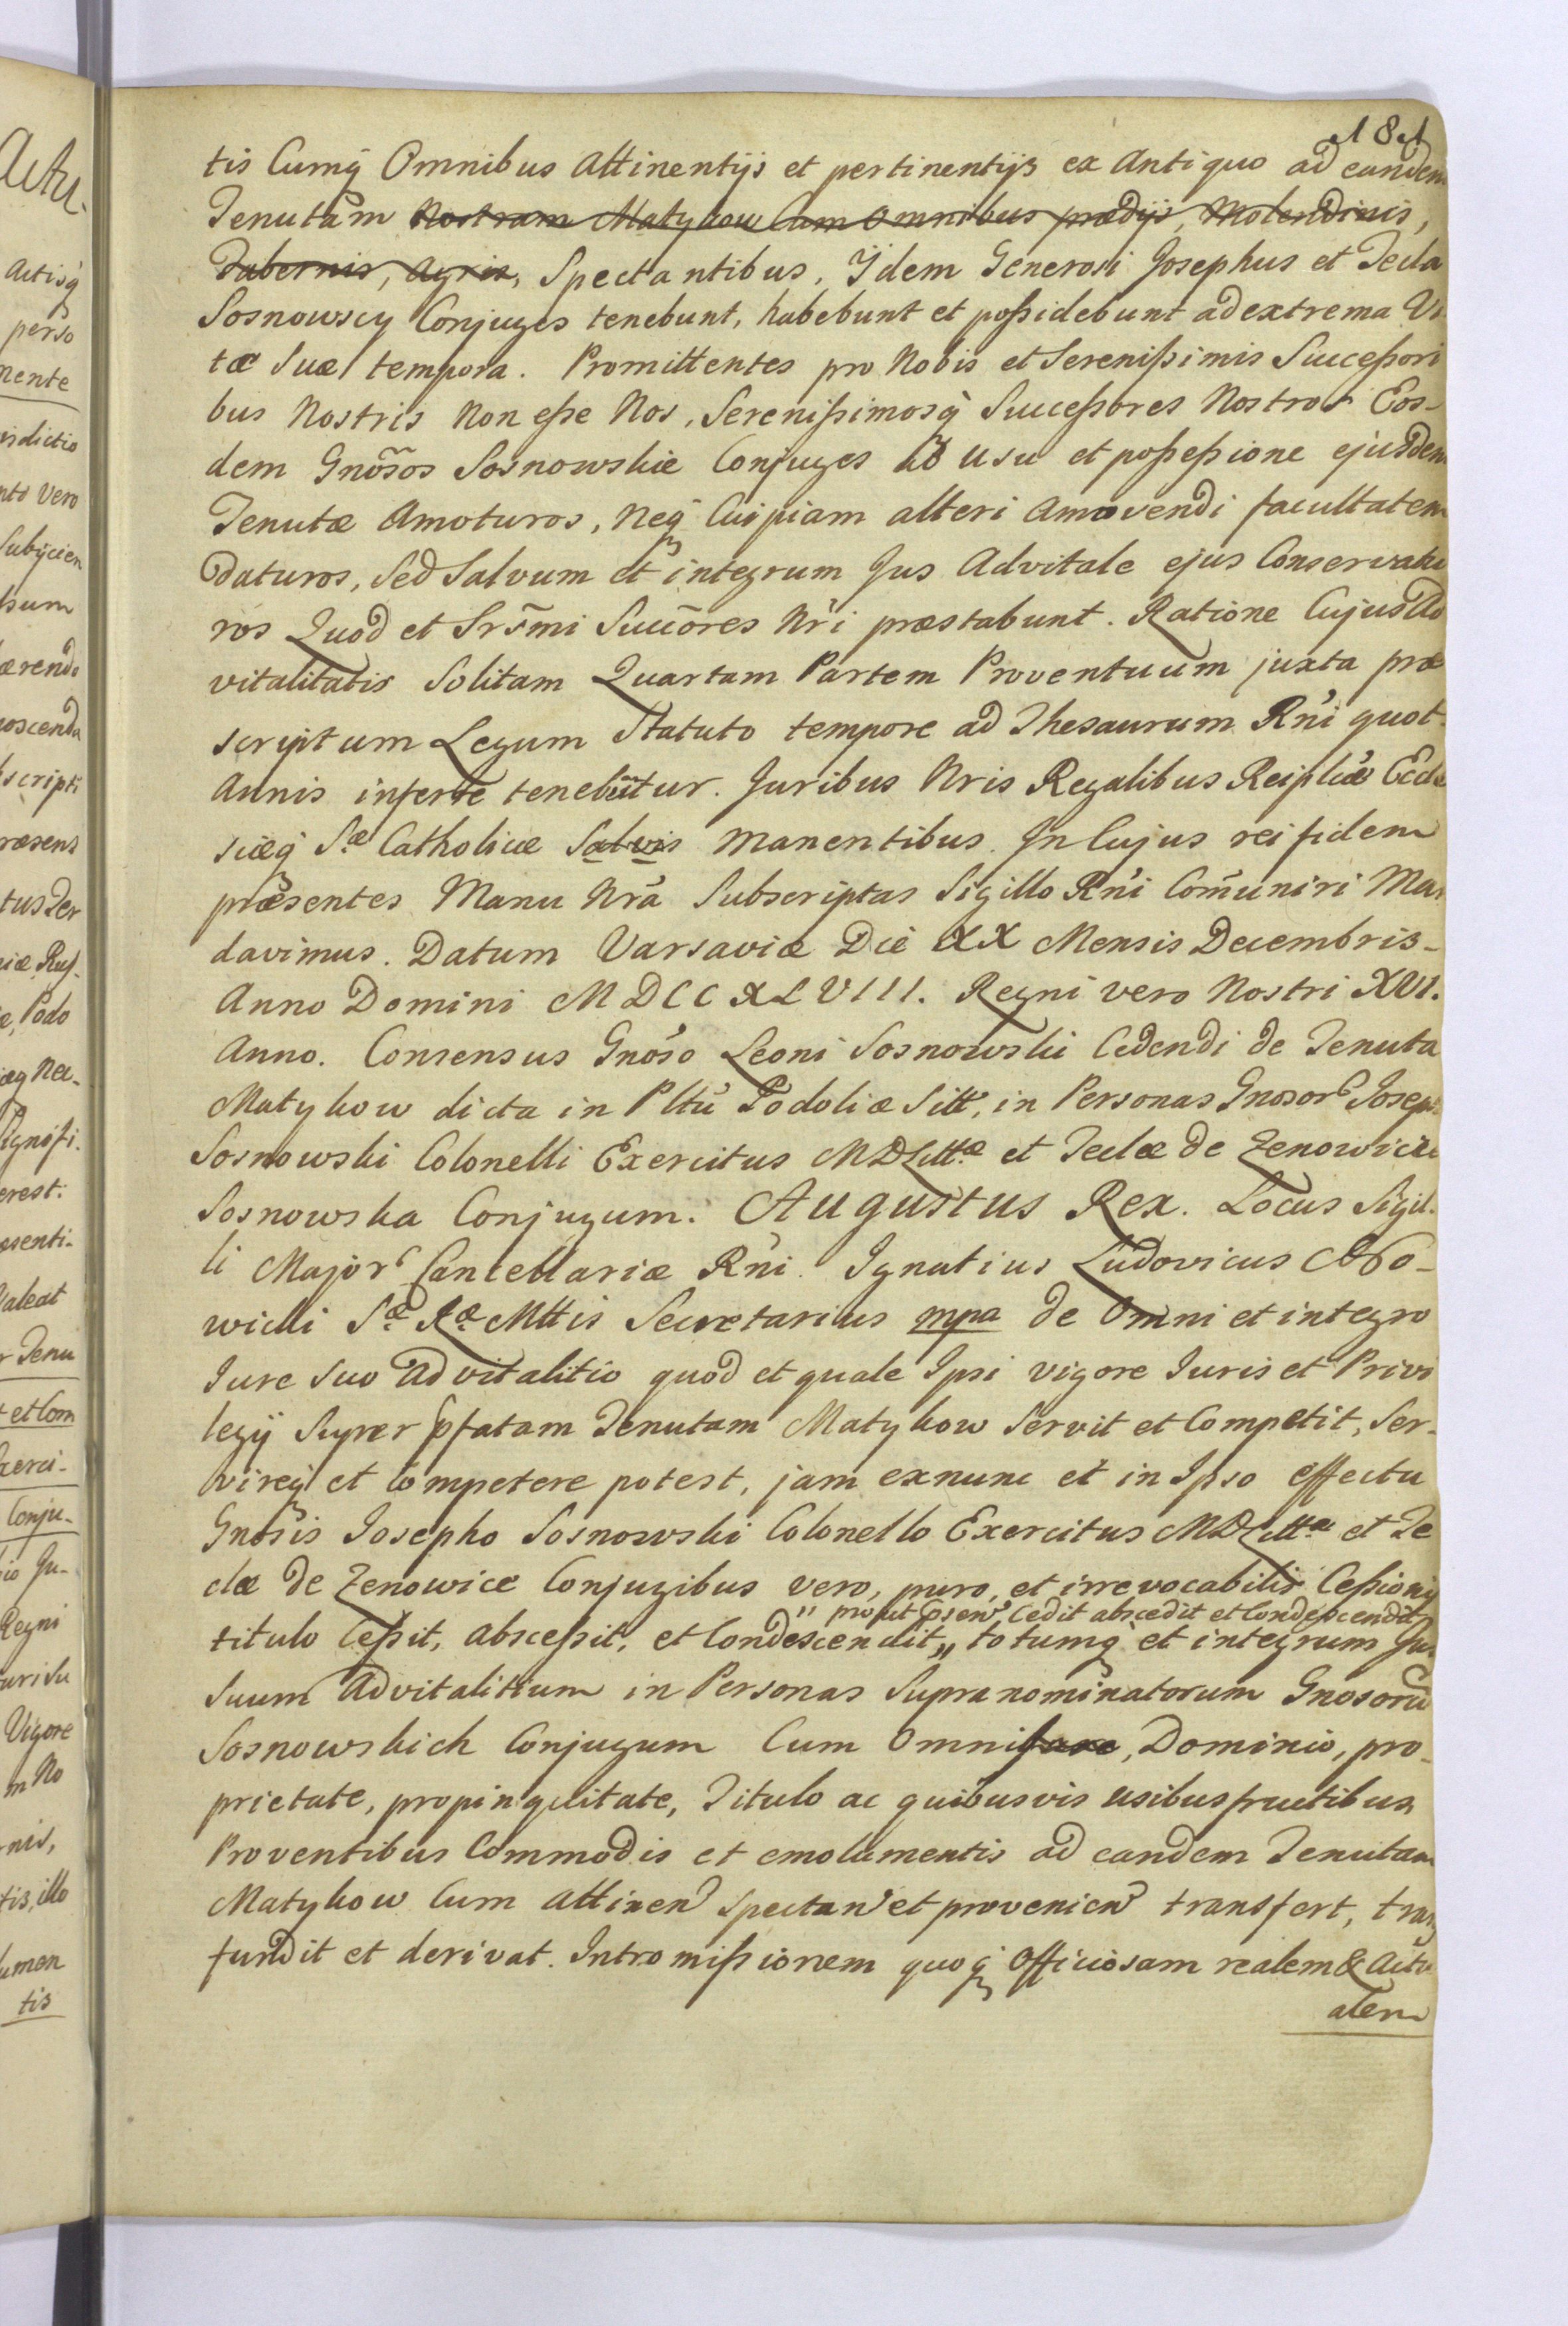 181
tis Cumq̃ Omnibus Attinentijs et pertinentijs ex Antiquo ad eandem
Tenutam Nostram Matykow Cum Omnibus prædijs, Molendinis,
Tabernis, Agris, Spectantibus, Ijdem Generosi Josephus et Tecla
Sosnowscy Conjuges tenebunt, habebunt et poßidebunt ad extrema Vi
tæ Suæ tempora. Promittentes pro Nobis et Serenißimis Succeßori
bus Nostris Non eße Nos, Serenißimosq̃ Succeßores Nostros Eos-
dem Gnõsos Sosnowskie Conjuges ab usu et poßeßione ejusdem
Tenutæ Amoturos, Neq̃ Cuipiam alteri Amovendi facultatem
Daturos, Sed Salvum et integrum Jus Advitale ejus Conservatu
ros Quod et Srs̃mi Succõres Nr̃i præstabunt. Ratione Cujus Ad
vitalitatis Solitam Quartam Partem Proventuum juxta præ
scriptum Legum Statuto tempore ad Thesaurum Rñi quot-
Annis inferre tenebũtur. Juribus Nris Regalibus Reiplicæ Eccle
siæq̃ Sæ Catholicæ Salvis Manentibus. In Cujus rei fidem
præsentes Manu Nrã Subscriptas Sigillo Rñi Com̃uniri Man
davimus. Datum Varsaviæ Die XX Mensis Decembris-
Anno Domini MDCCXLVIII. Regni vero Nostri XVI.
Anno. Consensus Gnõso Leoni Sosnowski Cedendi de Tenuta
Matykow dicta in Pltũ Podoliæ Sitt, in Personas Gnosor Josephi
Sosnowski Colonelli Exercitus MDLittæ et Teclæ de Zenowicze
Sosnowska Conjugum. Augustus Rex. Locus Sigil-
li Major Cancellariæ Rñi. Ignatius Ludovicus No-
wicki Sæ Ræ Mttis Secretarius mpa de Omni et integro
Jure Suo Advitalitio quod et quale Ipsi vigore Juris et Privi
legij Super pfatam Tenutam Matykow Servit et Competit, Ser-
vireq̃ et Competere potest, jam exnunc et in Ipso effectu
Gnõsis Josepho Sosnowski Colonello Exercitus MDLittæ et Te
clæ de Zenowicze Conjugibus vero, puro, et irrevocabilis Ceßionis
" prout psen, Cedit abscedit et Condescendit
titulo Ceßit, Absceßit, et Condescendit „ totumq̃ et integrum Jus
Suum Advitalitium in Personas Supranominatorum Gnosorũ
Sosnowskich Conjugum Cum Omni Jure, Dominio, pro-
prietate, propinquitate, Titulo ac quibusvis usibusfructibus
Proventibus Commodis et emolumentis ad eandem Tenutam
Matykow Cum Attinen Spectan et provenien transfert, trans
fundit et derivat. Intromißionem quoq̃ Officiosam realem & Actu
alem